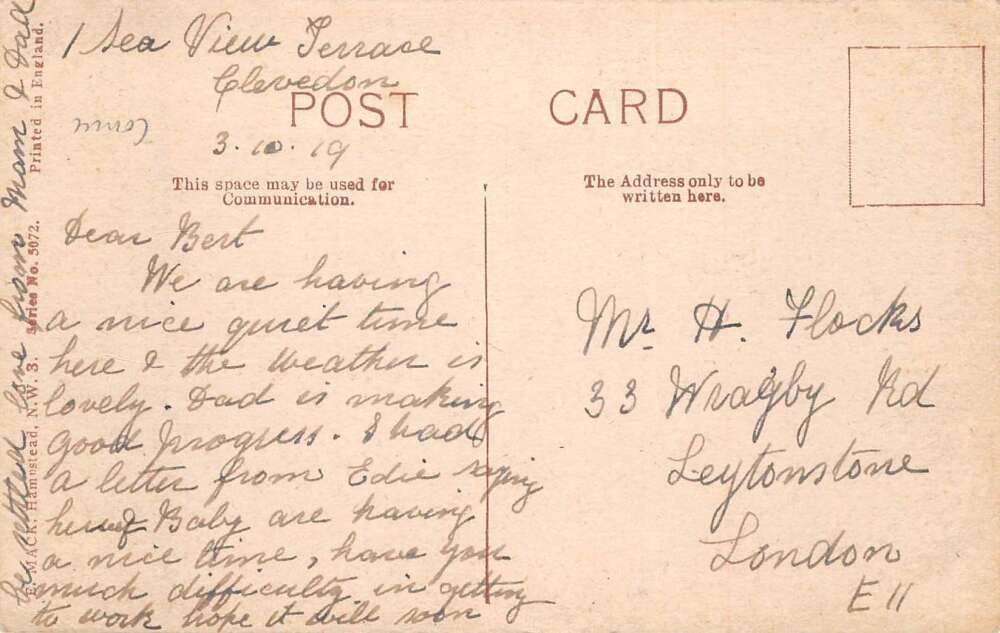 1 Sea View Terrace
Clevedon
POST CARD
3.10.19
This space may be used for
Communication.
The Address only to be
written here.
Dear Bert
We are having
a nice quiet time
here & the weather is
lovely. Dad is making
good progress. I had
a letter from Edie saying
her & Baby are having
a nice time, have you
much difficulty in getting
to work hope it will soon
be settled love from Mam & Dad
E. MACK, Hampstead, N.W. 3. Series No. 5072. Printed in England.
Mr H. Flocks
33 Wragby Rd
Leytonstone
London
E 11